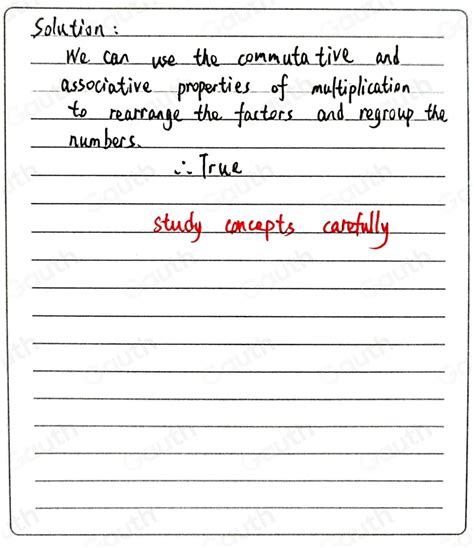 Solution :
We can use the commutative and
associative properties of multiplication
to rearrange the factors and regroup the
numbers.
∴ True
study concepts carefully